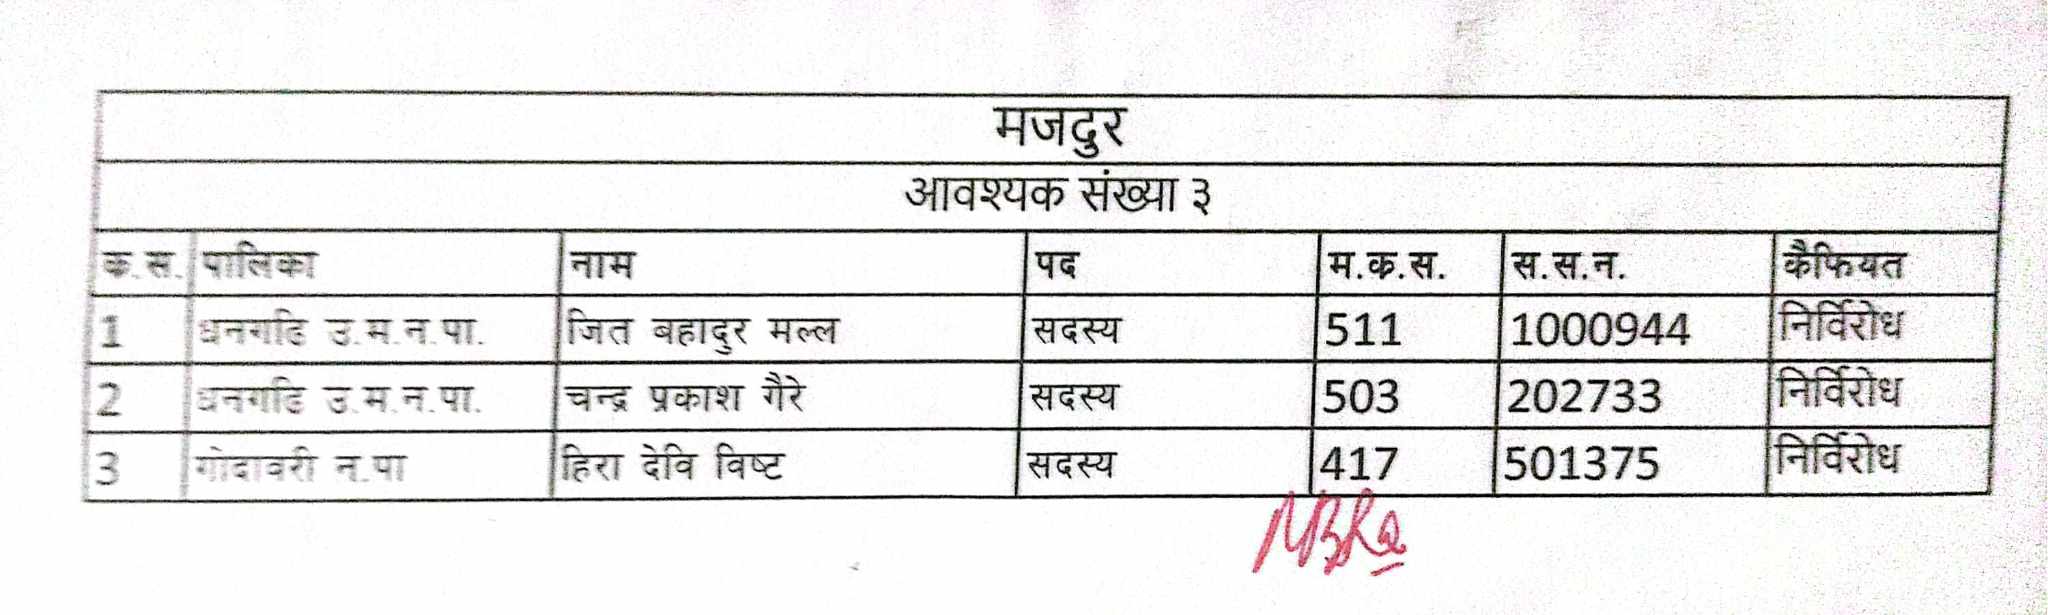 मजदुर
आवश्यक संख्या ३
क.स. पालिका नाम पद म.क.स. स.स.न. कैफियत
1 धनगढि उ.म.न.पा. जित बहादुर मल्ल सदस्य 511 1000944 निर्विरोध
2 धनगढि उ.म.न.पा. चन्द्र प्रकाश गैरे सदस्य 503 202733 निर्विरोध
3 गोदावरी न.पा हिरा देवि विष्ट सदस्य 417 501375 निर्विरोध